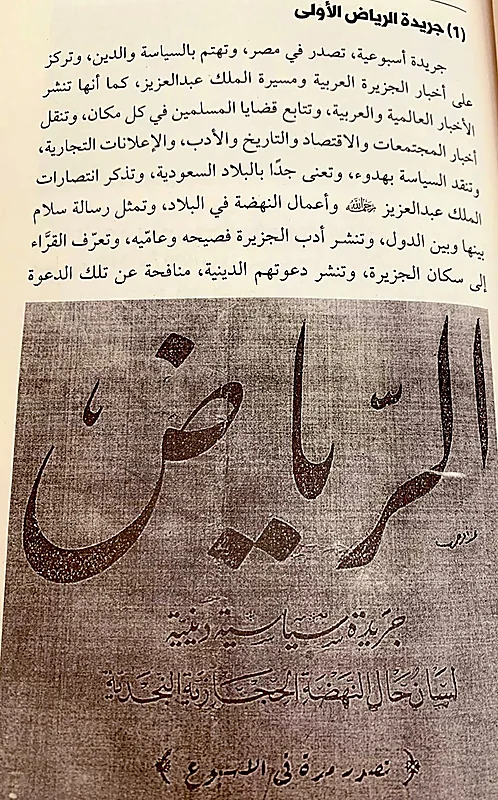 (1) جريدة الرياض الأولى
جريدة أسبوعية، تصدر في مصر، وتهتم بالسياسة والدين، وتركز
على أخبار الجزيرة العربية ومسيرة الملك عبدالعزيز، كما أنها تنشر
الأخبار العالمية والعربية، وتتابع قضايا المسلمين في كل مكان، وتنقل
أخبار المجتمعات والاقتصاد والتاريخ والأدب، والإعلانات التجارية،
وتنقد السياسة بهدوء، وتعنى جدًا بالبلاد السعودية، وتذكر انتصارات
الملك عبدالعزيز وأعمال النهضة في البلاد، وتمثل رسالة سلام
بينها وبين الدول، وتنشر أدب الجزيرة فصيحه وعاميّه، وتعرّف القرَّاء
إلى سكان الجزيرة، وتنشر دعوتهم الدينية، منافحة عن تلك الدعوة
الرّياض
جريدة سياسية دينية
لسان حال النهضة الحجازية النجدية
تصدر مرة في الاسبوع